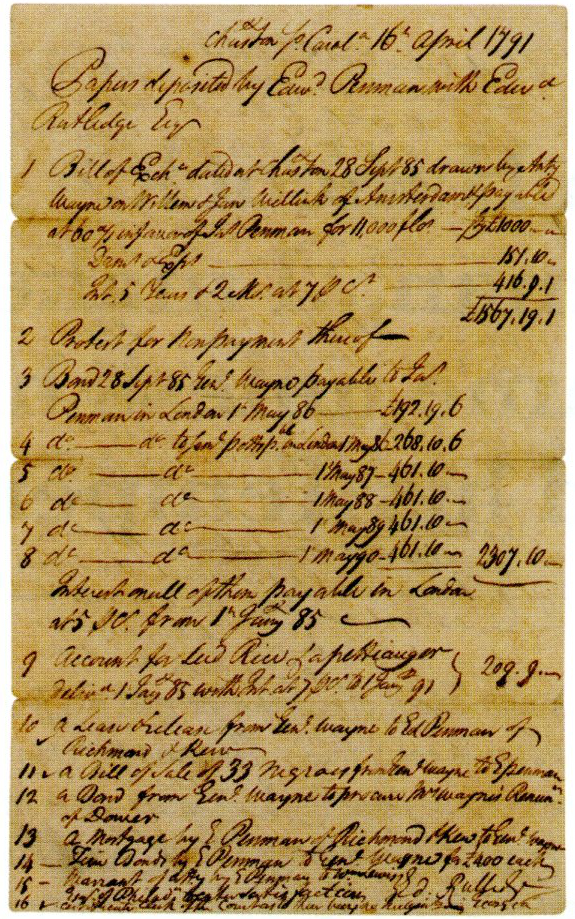 Chaston So Carola 16th April 1791
Papers deposited by Edwd Penman with Edwd
Rutledge Esqr
1 Bill of Exche dated at Chaston 28 Sept 85 drawn by Anty
Wayne on Willem & Jan Willink of Amsterdam & payable
at 60 in favor of Jas Penman for 11,000 flos £1000
Dams & Expt 151.10
Int. 5 Years & 2 Ms. at 7 P Ct. 416.9.1
£1567.19.1
2 Protest for Nonpayment thereof
3 Bond 28 Sept 85 Genl Wayne payable to Jas.
Penman in London 1st May 86 £192.19.6
4 do do to in London 1 May 86 268.10.6
5 do do 1 May 87 461.10
6 do do 1 May 88 461.10
7 do do 1 May 89 461.10
8 do do 1 May 90 461.10 2307.10
Interest on all of them payable in London
at 5 P Ct. from 1st Jany 85
9 Account for
delivd 1 Jany 85 with Int at 7 P Ct. to 1 Jany 91 209.9
10 a Lease & release from Genl. Wayne to Ed Penman of
Richmond & Kew
11 a Bill of Sale of 33 Negroes from Genl Wayne to E Penman
12 a Bond from Genl. Wayne to procure Mrs Wayne's Renun
of Dower
13 a Mortgage by E Penman of Richmond & Kew to Genl Wayne
14 Five Bonds by E Penman to Genl Wayne for £400 each
15 Warrant of Atty by E Penman to
Ed. Rutledge
16 Certificate